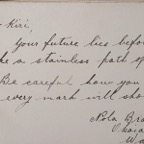 Kiri,
Your future lies befor
a stainless path of
Be careful how you
every mark will sho
Nola Bra